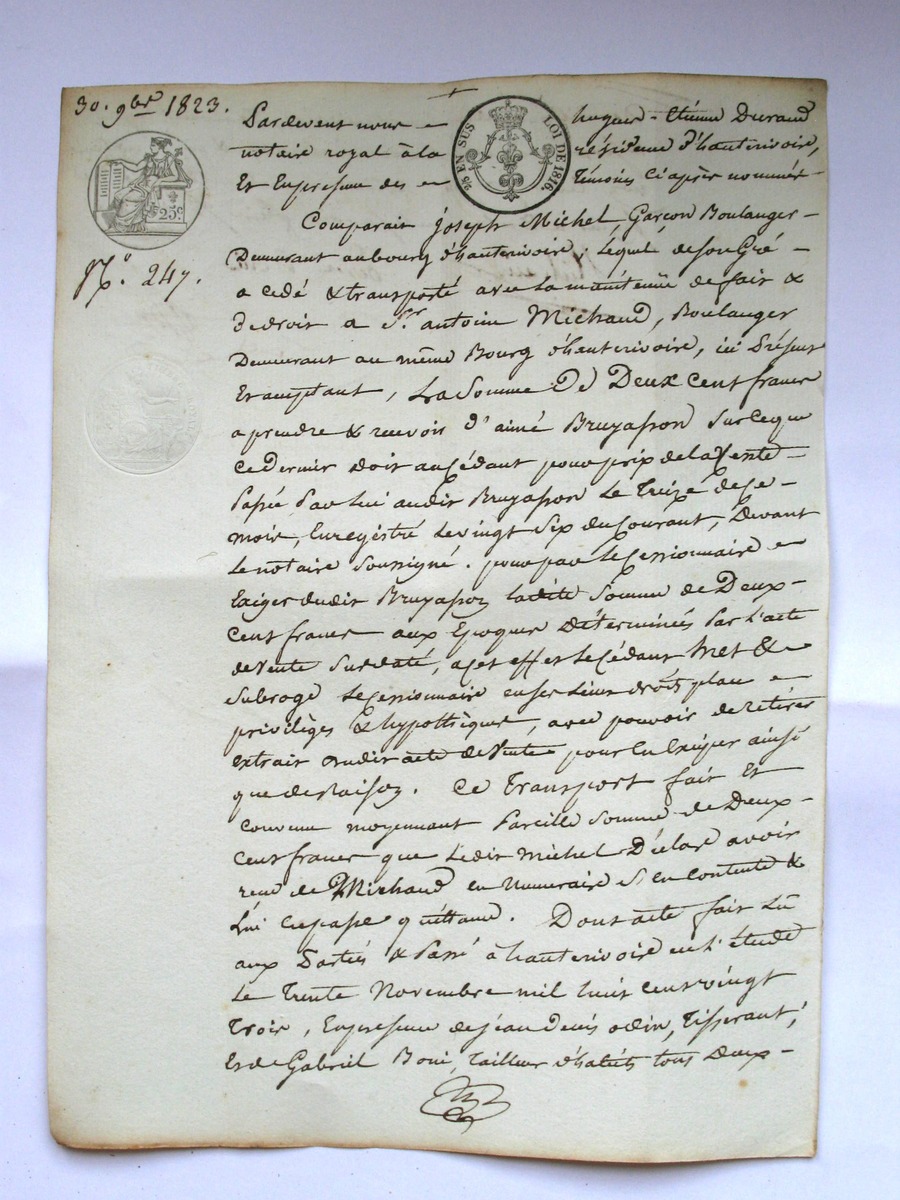 30. 9bre 1823.
Pardevent nous hugues-Etienne Durand
notaire royal à la résidence d'hauterivoire,
Et En présence des témoins ci après nommés
25 EN SUS LOI DE 1816.
25c
Comparait Joseph Michel, Garçon Boulanger
Demeurant au bourg d'hauterivoire; Lequel de son Gré
N.o 247.
a cédé & transporté avec la maintenüe de fait &
de droit a Sr. antoine Michaud, Boulanger
Demeurant au même Bourg d'hauterivoire, ici Présent
Et acceptant, La Somme De Deux cent francs
a prendre & recevoir d'aimé Bruyasson sur ce que
ce Dernier doit au Cédant pour prix de la Vente
Passée Par Lui audit Bruyasson Le Treize de ce
mois, Enregistré le vingt six du Courant, Devant
Le notaire soussigné. pour par le Cessionnaire
Exiger dudit Bruyasson ladite Somme de Deux
Cent francs aux Epoques Déterminées Par l'acte
de Vente susdaté, a cet effet le Cédant Met &
subroge Le Cessionnaire en ses Lieux droits place
privilèges & hypothèques, avec pouvoir de retirer
extrait dudit acte de Vente pour En Exiger ainsi
que de Raison. Ce Transport fait Et
Convenu moyennant Pareille Somme de Deux
Cent francs que Ledit Michel Déclare avoir
reçu de Michaud en Numeraire S'en Contente &
Lui en passe quittance. Dont acte fait Lû
aux Parties & Passé à hauterivoire en l'étude
Le Trente Novembre mil huit cent vingt
Trois, En présence de jean denis odin, Tisserant,
Et de Gabriel Boni, Tailleur d'habits tous Deux